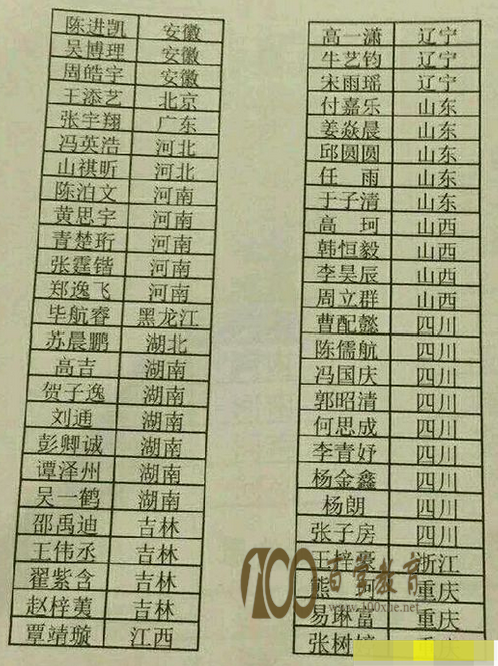 陈进凯 安徽
吴博理 安徽
周皓宇 安徽
王添艺 北京
张宇翔 广东
冯英浩 河北
山祺昕 河北
陈泊文 河南
黄思宇 河南
青楚珩 河南
张霆锴 河南
郑逸飞 河南
毕航睿 黑龙江
苏晨鹏 湖北
高吉 湖南
贺子逸 湖南
刘通 湖南
彭卿诚 湖南
谭泽州 湖南
吴一鹤 湖南
邵禹迪 吉林
王伟丞 吉林
翟紫含 吉林
赵梓萬 吉林
覃靖璇 江西
高一潇 辽宁
牛艺钧 辽宁
宋雨瑶 辽宁
付嘉乐 山东
姜焱晨 山东
邱圆圆 山东
任雨 山东
于子清 山东
高珂 山西
韩恒毅 山西
李昊辰 山西
周立群 山西
曹配懿 四川
陈儒航 四川
冯国庆 四川
郭昭清 四川
何思成 四川
李青妤 四川
杨金鑫 四川
杨朗 四川
张子房 四川
王梓豪 浙江
熊 重庆
易琳富 重庆
张树 重庆
100百学教育
www.100xue.net